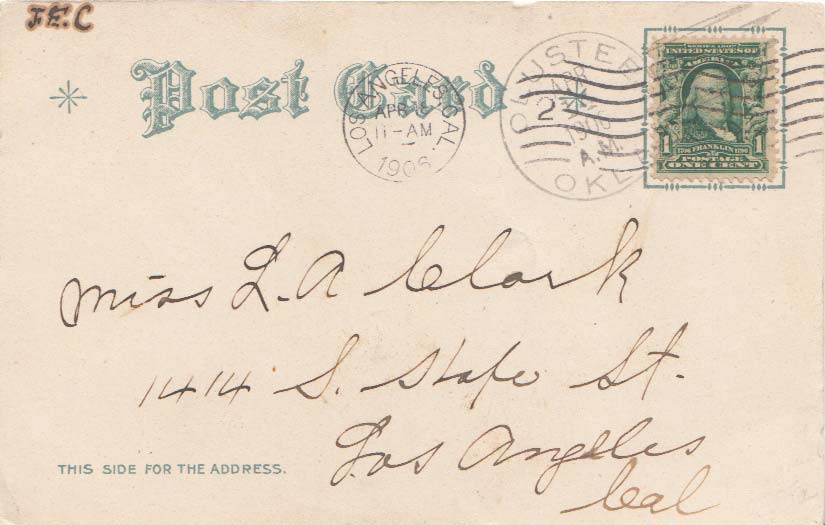 J.E.C
Post Card
LOS ANGELES, CAL.
APR
11-AM
1906
OLUSTEE
OKLA
APR
2
1906
A.M.
SERIES 1902
UNITED STATES OF
AMERICA
1 1706 FRANKLIN 1790 1
POSTAGE
ONE CENT
Miss L. A Clark
1414 S. State St.
Los Angeles
Cal
THIS SIDE FOR THE ADDRESS.